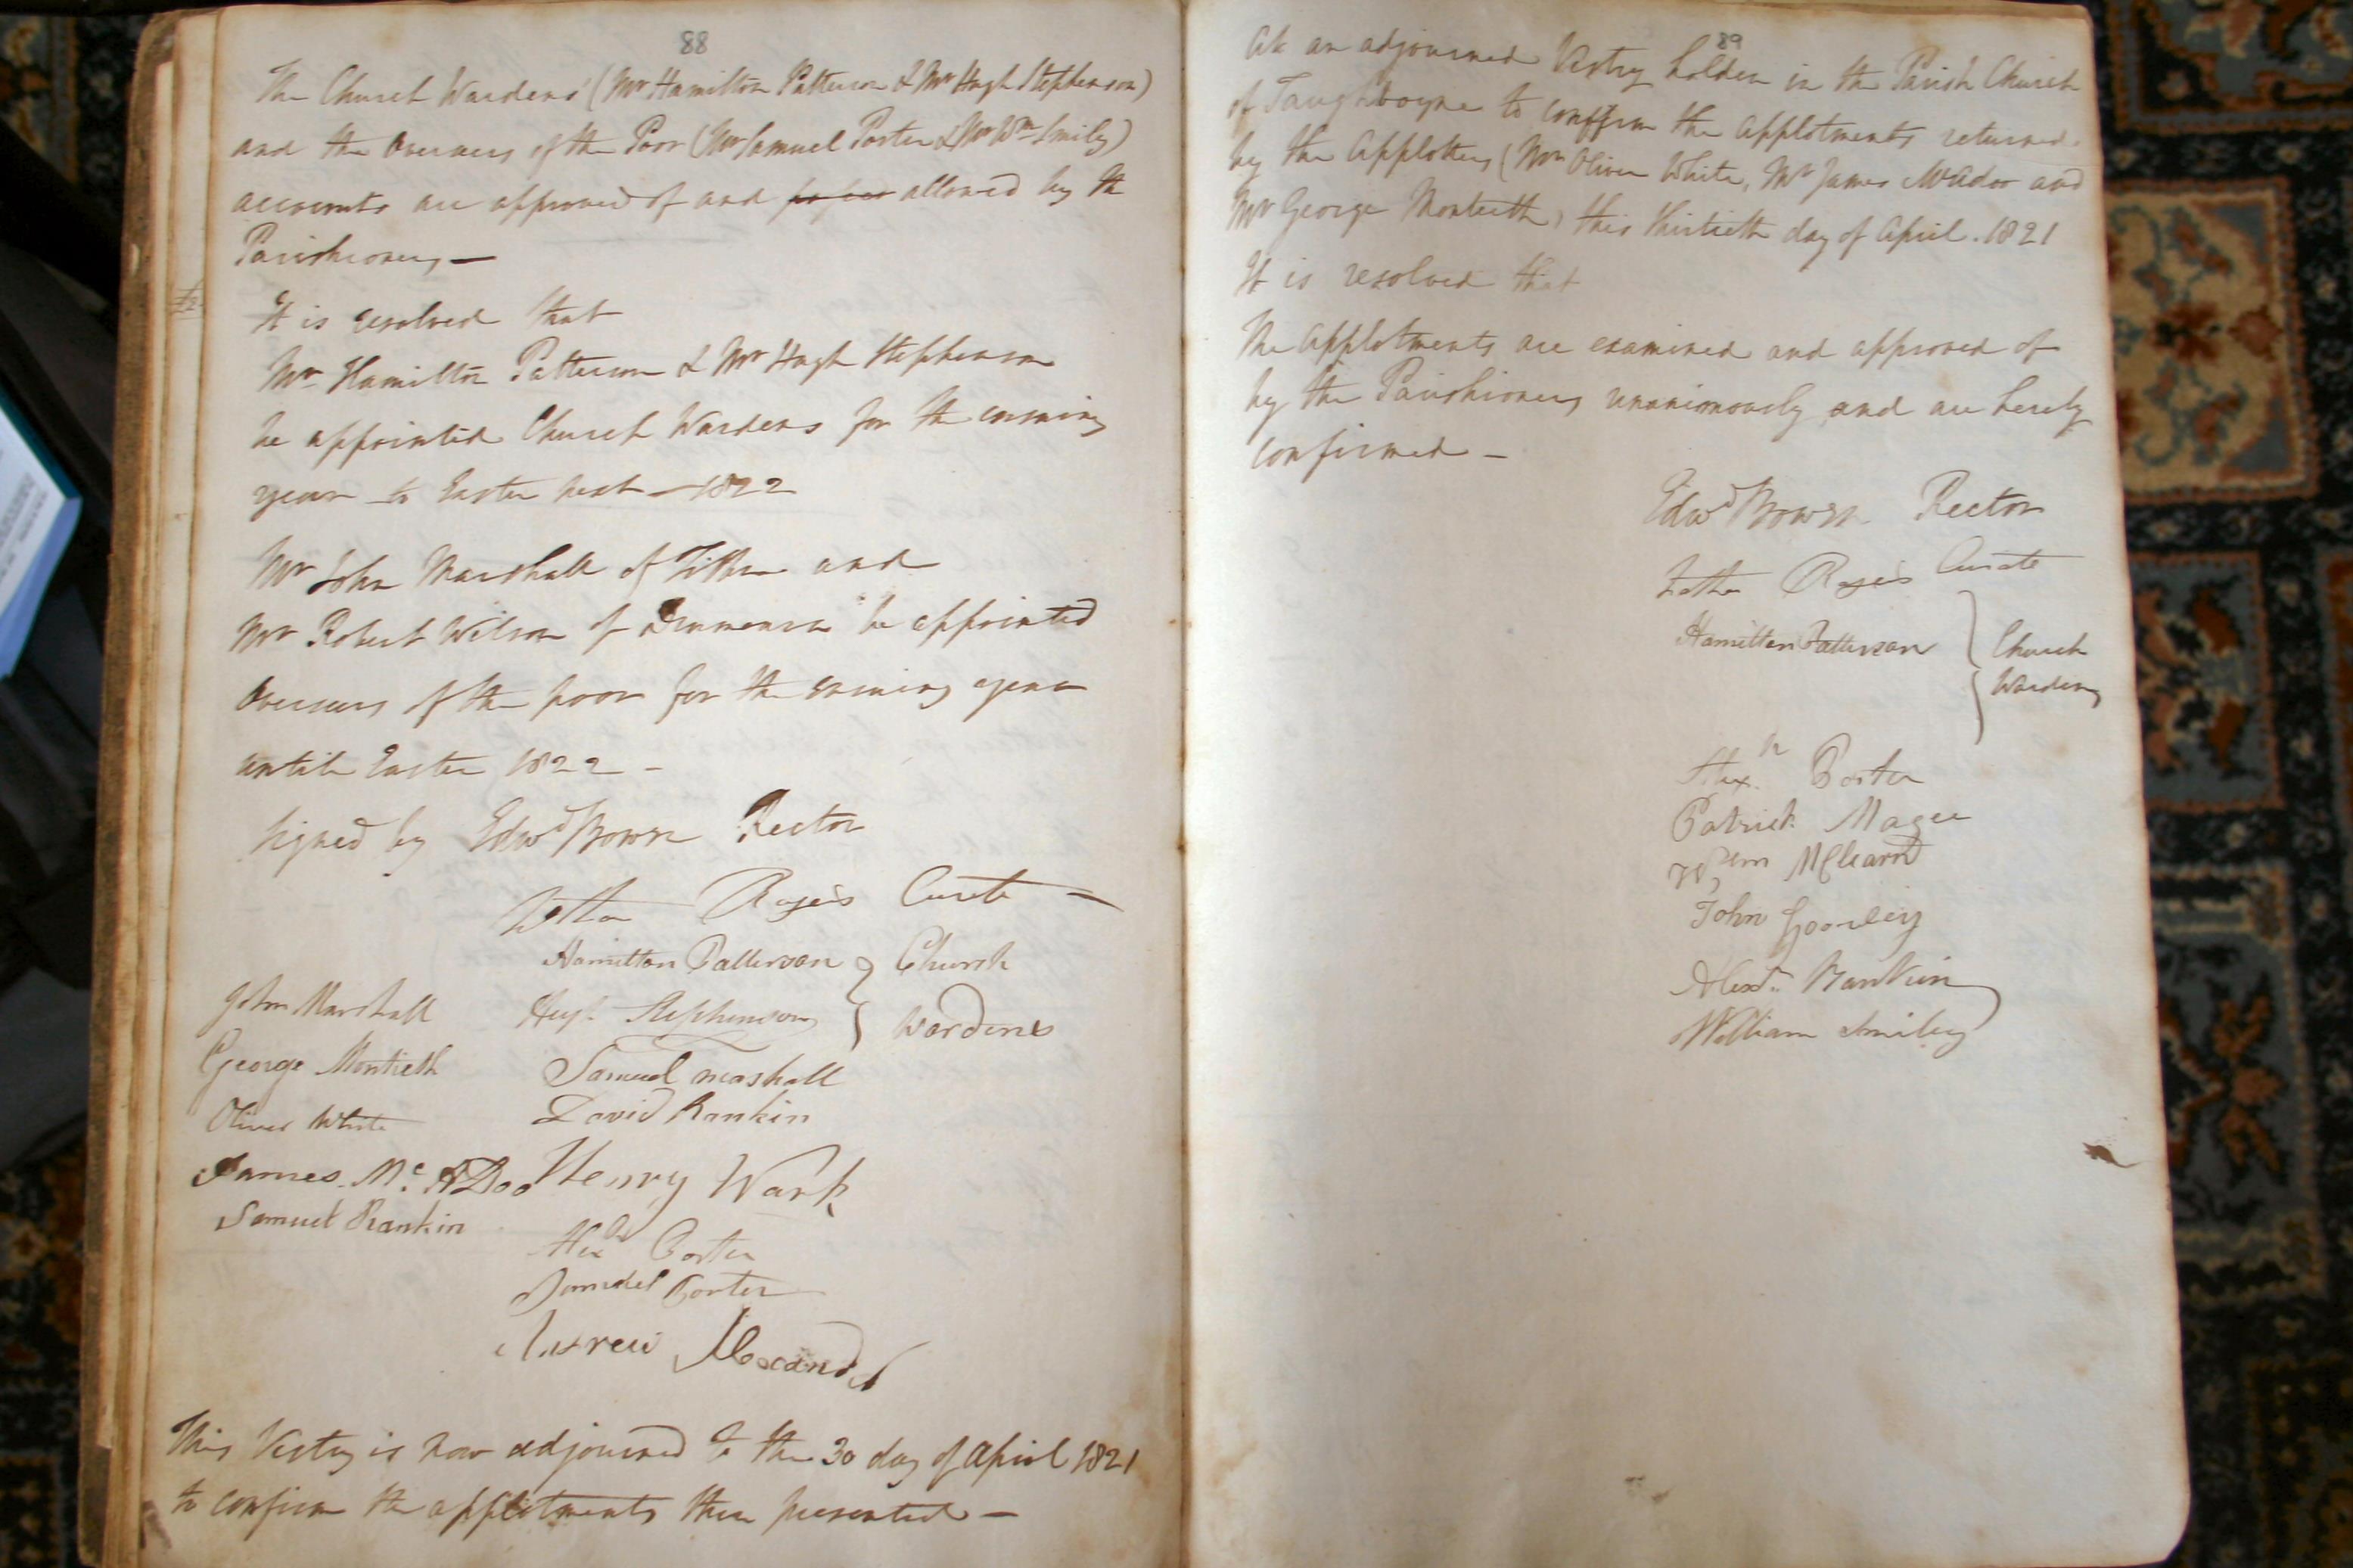 88
The Church Wardens (Mr Hamilton Patterson & Mr Hugh Stephenson)
and the Overseers of the Poor (Mr Samuel Porter & Mr Wm Smily)
accounts are approved of and allowed by the
Parishioners —
It is resolved that
Mr Hamilton Patterson & Mr Hugh Stephenson
be appointed Church Wardens for the ensuing
year to Easter next — 1822
Mr John Marshall of and
Mr Robert Wilson of be appointed
Overseers of the poor for the ensuing year
until Easter 1822 —
Signed by Edwd Bowen Rector
Rogers Curate —
Hamilton Patterson } Church
John Marshall Hugh Stephenson } Wardens
George Montieth Samuel Marshall
Oliver White David Rankin
James McADoo Henry Wark
Samuel Rankin
Alexr Porter
Samuel Porter
Andrew Alexander
This Vestry is now adjourned to the 30 day of April 1821
to confirm the applotments then presented —
89
At an adjourned Vestry holden in the Parish Church
of Taughboyne to confirm the applotments returned
by the Applotters (Mr Oliver White, Mr James McAdoo and
Mr George Monteeth) this thirtieth day of April. 1821
It is resolved that
The Applotments are examined and approved of
by the Parishioners unanimously and are hereby
confirmed —
Edwd Bowen Rector
Rogers Curate
Hamilton Patterson } Church
Wardens
Alexr Porter
Patrick Magee
Wm
John Gourley
Alexr Rankin
William Smiley